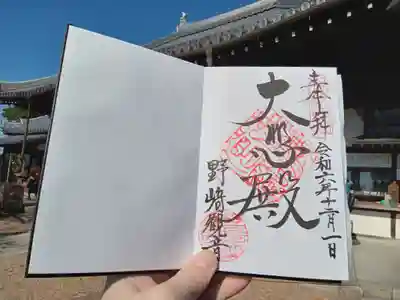 奉拝
令和六年十二月一日
大悲殿
野崎観音